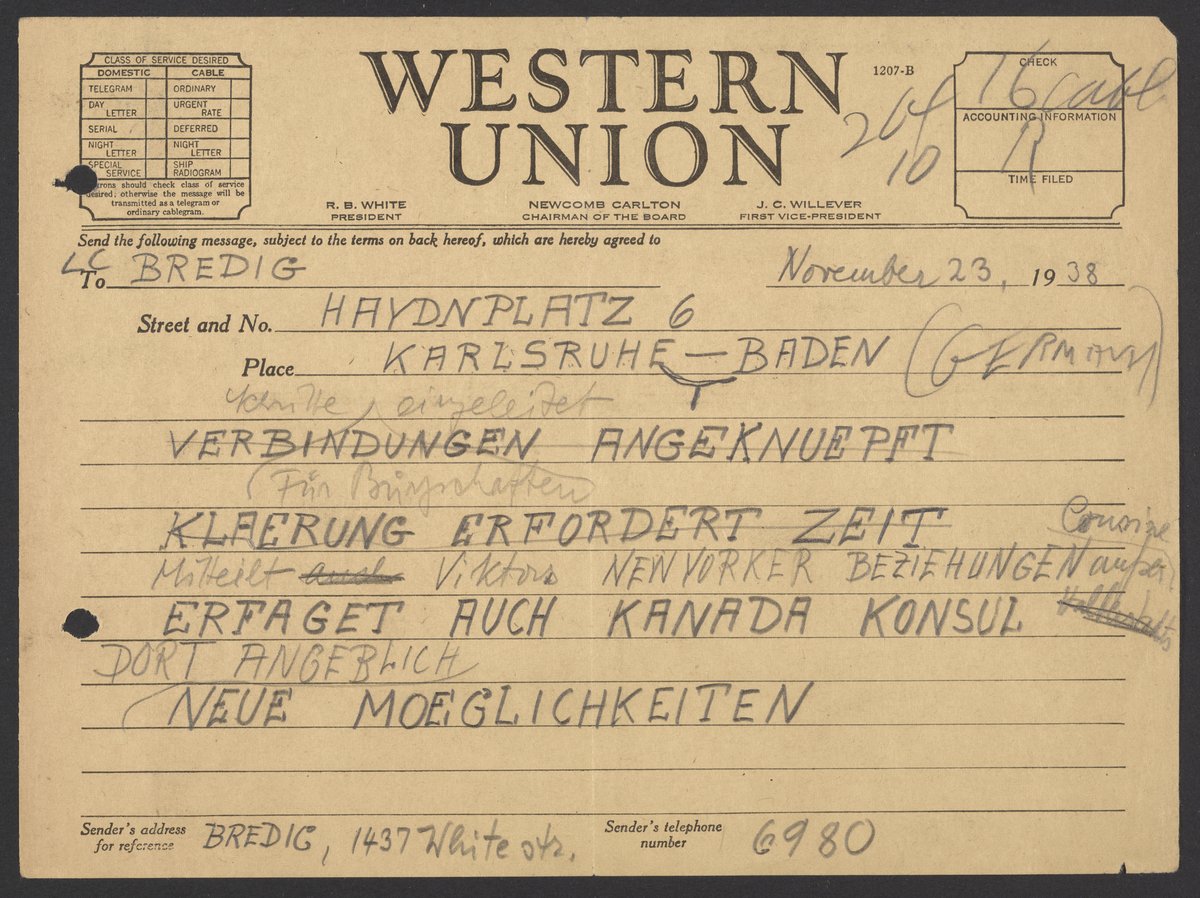 CLASS OF SERVICE DESIRED
DOMESTIC CABLE
TELEGRAM ORDINARY
DAY LETTER URGENT RATE
SERIAL DEFERRED
NIGHT LETTER NIGHT LETTER
SPECIAL SERVICE SHIP RADIOGRAM
Patrons should check class of service
desired; otherwise the message will be
transmitted as a telegram or
ordinary cablegram.
WESTERN
UNION
1207-B
R. B. WHITE
PRESIDENT
NEWCOMB CARLTON
CHAIRMAN OF THE BOARD
J. C. WILLEVER
FIRST VICE-PRESIDENT
204
10
CHECK
16 cabl
ACCOUNTING INFORMATION
R
TIME FILED
Send the following message, subject to the terms on back hereof, which are hereby agreed to
LC
To BREDIG November 23, 1938
Street and No. HAYDNPLATZ 6
Place KARLSRUHE — BADEN (GERMANY)
Schritte eingeleitet
VERBINDUNGEN ANGEKNUEPFT
(Für Bürgschaften)
KLAERUNG ERFORDERT ZEIT Cousine
Mitteilt auch Viktors NEWYORKER BEZIEHUNGEN außer
ERFAGET AUCH KANADA KONSUL
DORT ANGEBLICH
NEUE MOEGLICHKEITEN
Sender's address for reference BREDIG, 1437 White str. Sender's telephone number 6980